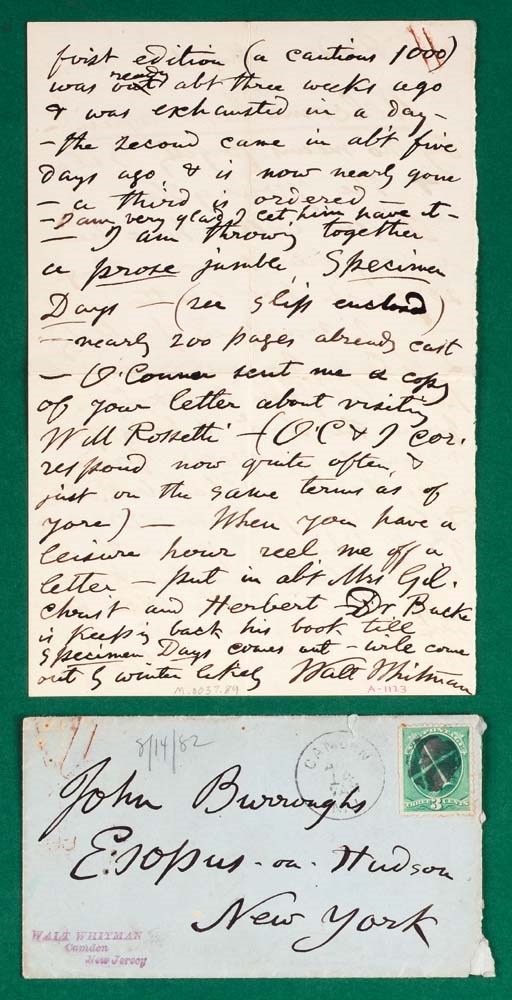 first edition (a cautious 1000)
was ready abt three weeks ago
& was exhausted in a day –
– the second came in ab't five
days ago, & is now nearly gone
– a third is ordered –
– I am very glad I let him have it –
– I am throwing together
a prose jumble, Specimen
Days – (see slip enclosed)
– nearly 200 pages already cast
– O'Connor sent me a copy
of your letter about visiting
Will Rossetti – (O'C & I cor-
respond now quite often, &
just on the same terms as of
yore) – When you have a
leisure hour reel me off a
letter – put in ab't Mrs Gil-
christ and Herbert – Dr Bucke
is keeping back his book till
Specimen Days comes out – will come
out by winter likely Walt Whitman
M.0037.89
A-1173
8/14/82
CAMDEN
U.S. POSTAGE
THREE 3 CENTS
John Burroughs
Esopus-on-Hudson
New York
WALT WHITMAN
Camden
New Jersey